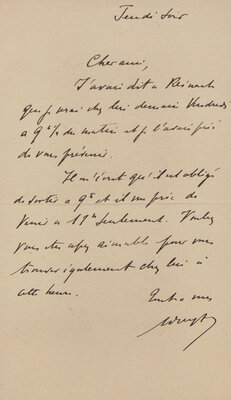 Jeudi soir
Cher ami,
J'avais dit à Reinach
que je serai chez lui demain Vendredi
à 9h 1/2 du matin et je l'avais prié
de vous prévenir.
Il m'écrit qu'il est obligé
de sortir à 9h et il me prie de
venir à 11h seulement. Voulez
vous être assez aimable pour vous
trouver également chez lui à
cette heure.
Tout à vous